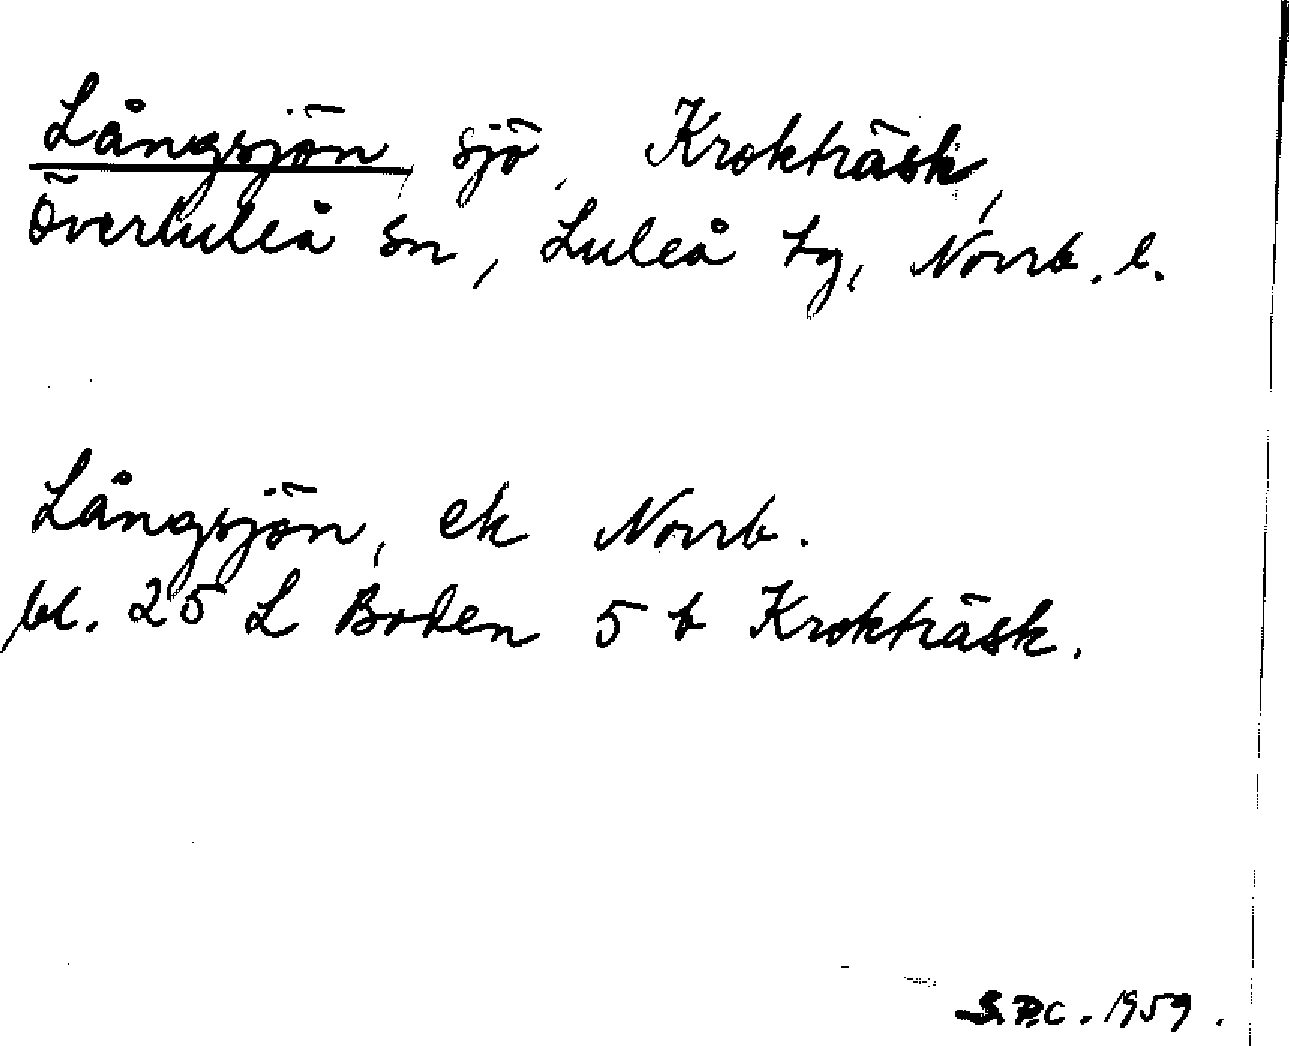 Långsjön, sjö, Krokträsk,
Överluleå sn, Luleå tg, Norrb. l.
Långsjön, ek Norrb.
bl. 25 L Boden 5 b Krokträsk.
S.P.C. 1959.